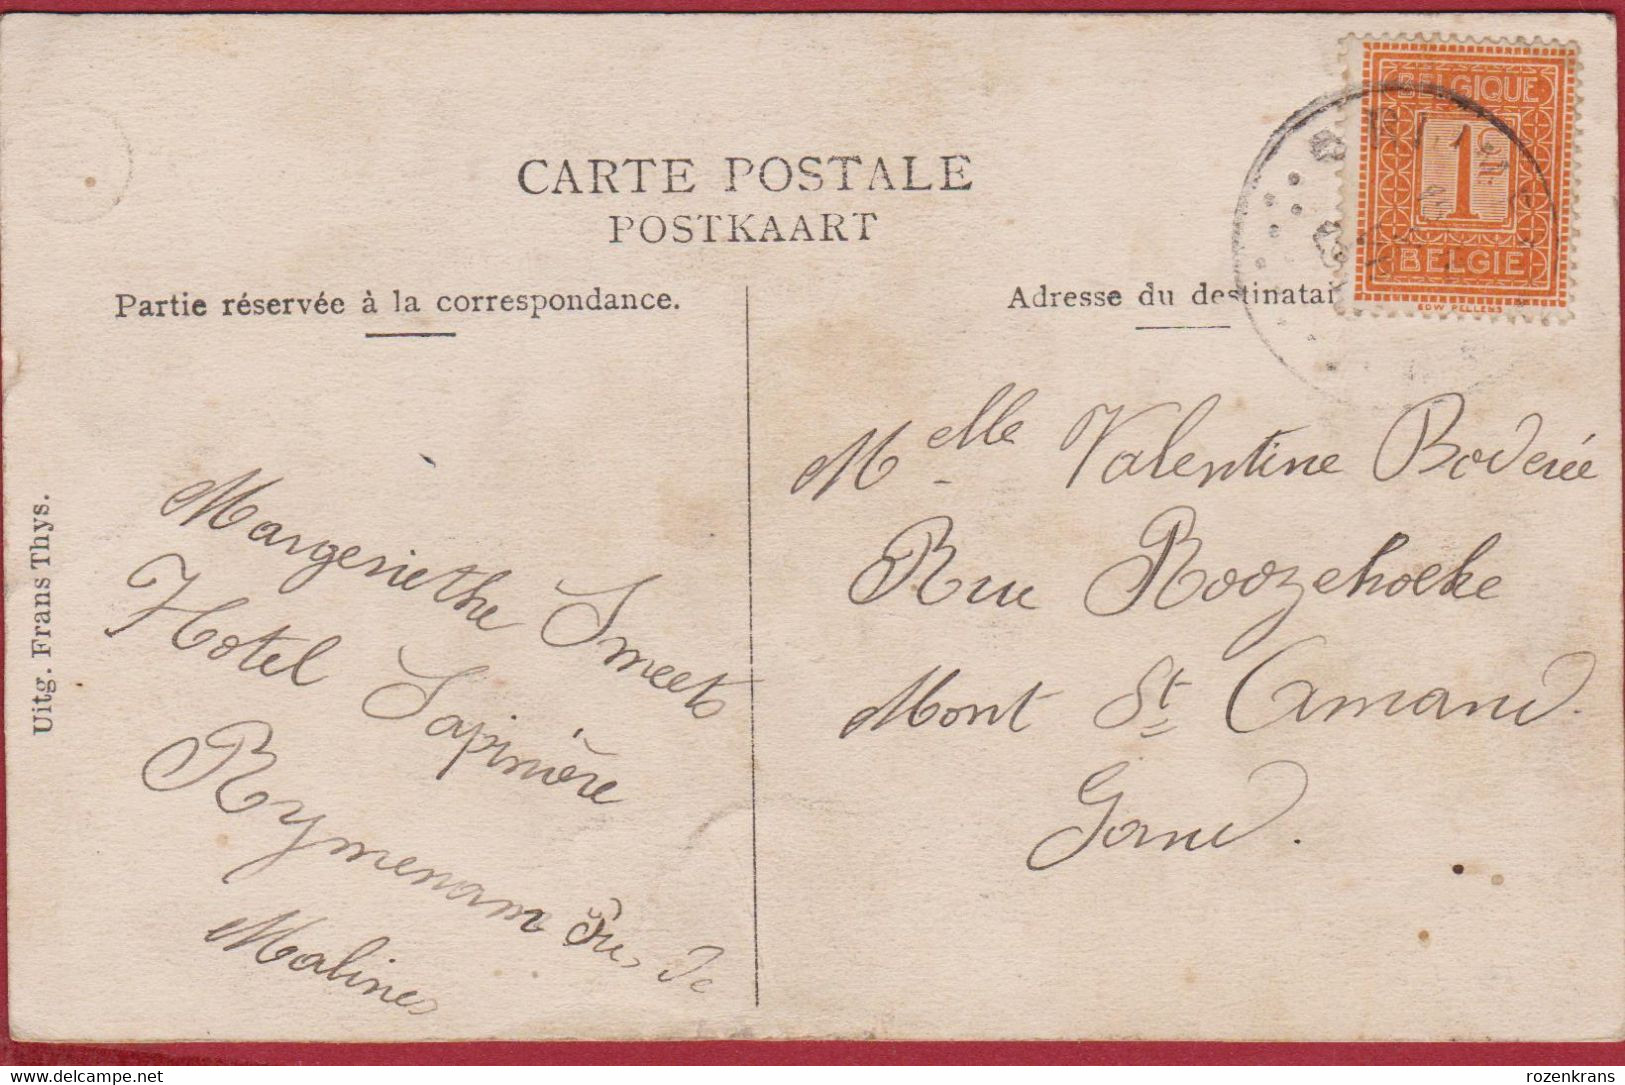 CARTE POSTALE
POSTKAART
Partie réservée à la correspondance.
Adresse du destinatai
BELGIQUE
1c
BELGIE
EDW PELLENS
Uitg. Frans Thys.
Margeriethe Smeets
Hotel Sapinière
Rymenam Près de
Malines
Melle Valentine Boderée
Rue Roozehoeke
Mont St Amand.
Gand.
delcampe.net
rozenkrans